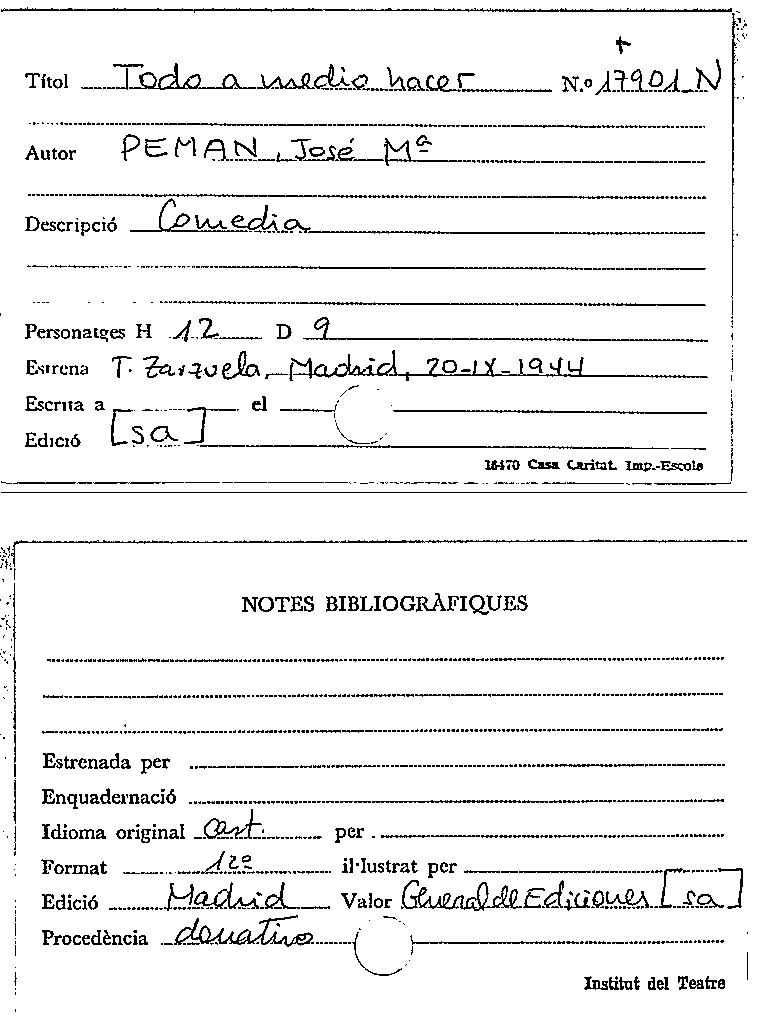 +
Títol Todo a medio hacer N.º 17901 N
Autor PEMAN, José Mª
Descripció Comedia
Personatges H 12 D 9
Estrena T. Zarzuela, Madrid, 20-IX-1944
Escrita a el
Edició [sa]
16470 Casa Caritat. Imp.-Escola
NOTES BIBLIOGRÀFIQUES
Estrenada per
Enquadernació
Idioma original Cast. per
Format 12º il·lustrat per
Edició Madrid Valor General de Ediciones [sa]
Procedència donativo
Institut del Teatre